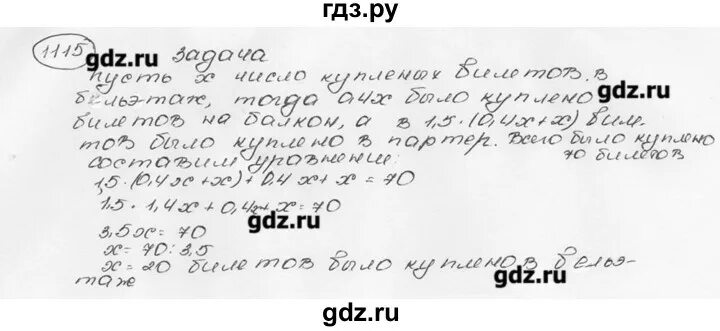 гдз.ру
1115 gdz.ru задача gdz.ru
пусть х число купленых билетов в
бельэтаж, тогда 0,4х было куплено
билетов на балкон, а в 1,5·(0,4х+х) биле-
тов было куплено в партер. Всего было куплено
70 билетов
составим уравнение:
1,5·(0,4х+х)+0,4х+х=70
1,5·1,4х+0,4х+х=70
gdz.ru
3,5х=70
х=70:3,5
х=20 билетов было куплено в бельэ-
таже
gdz.ru
gdz.ru